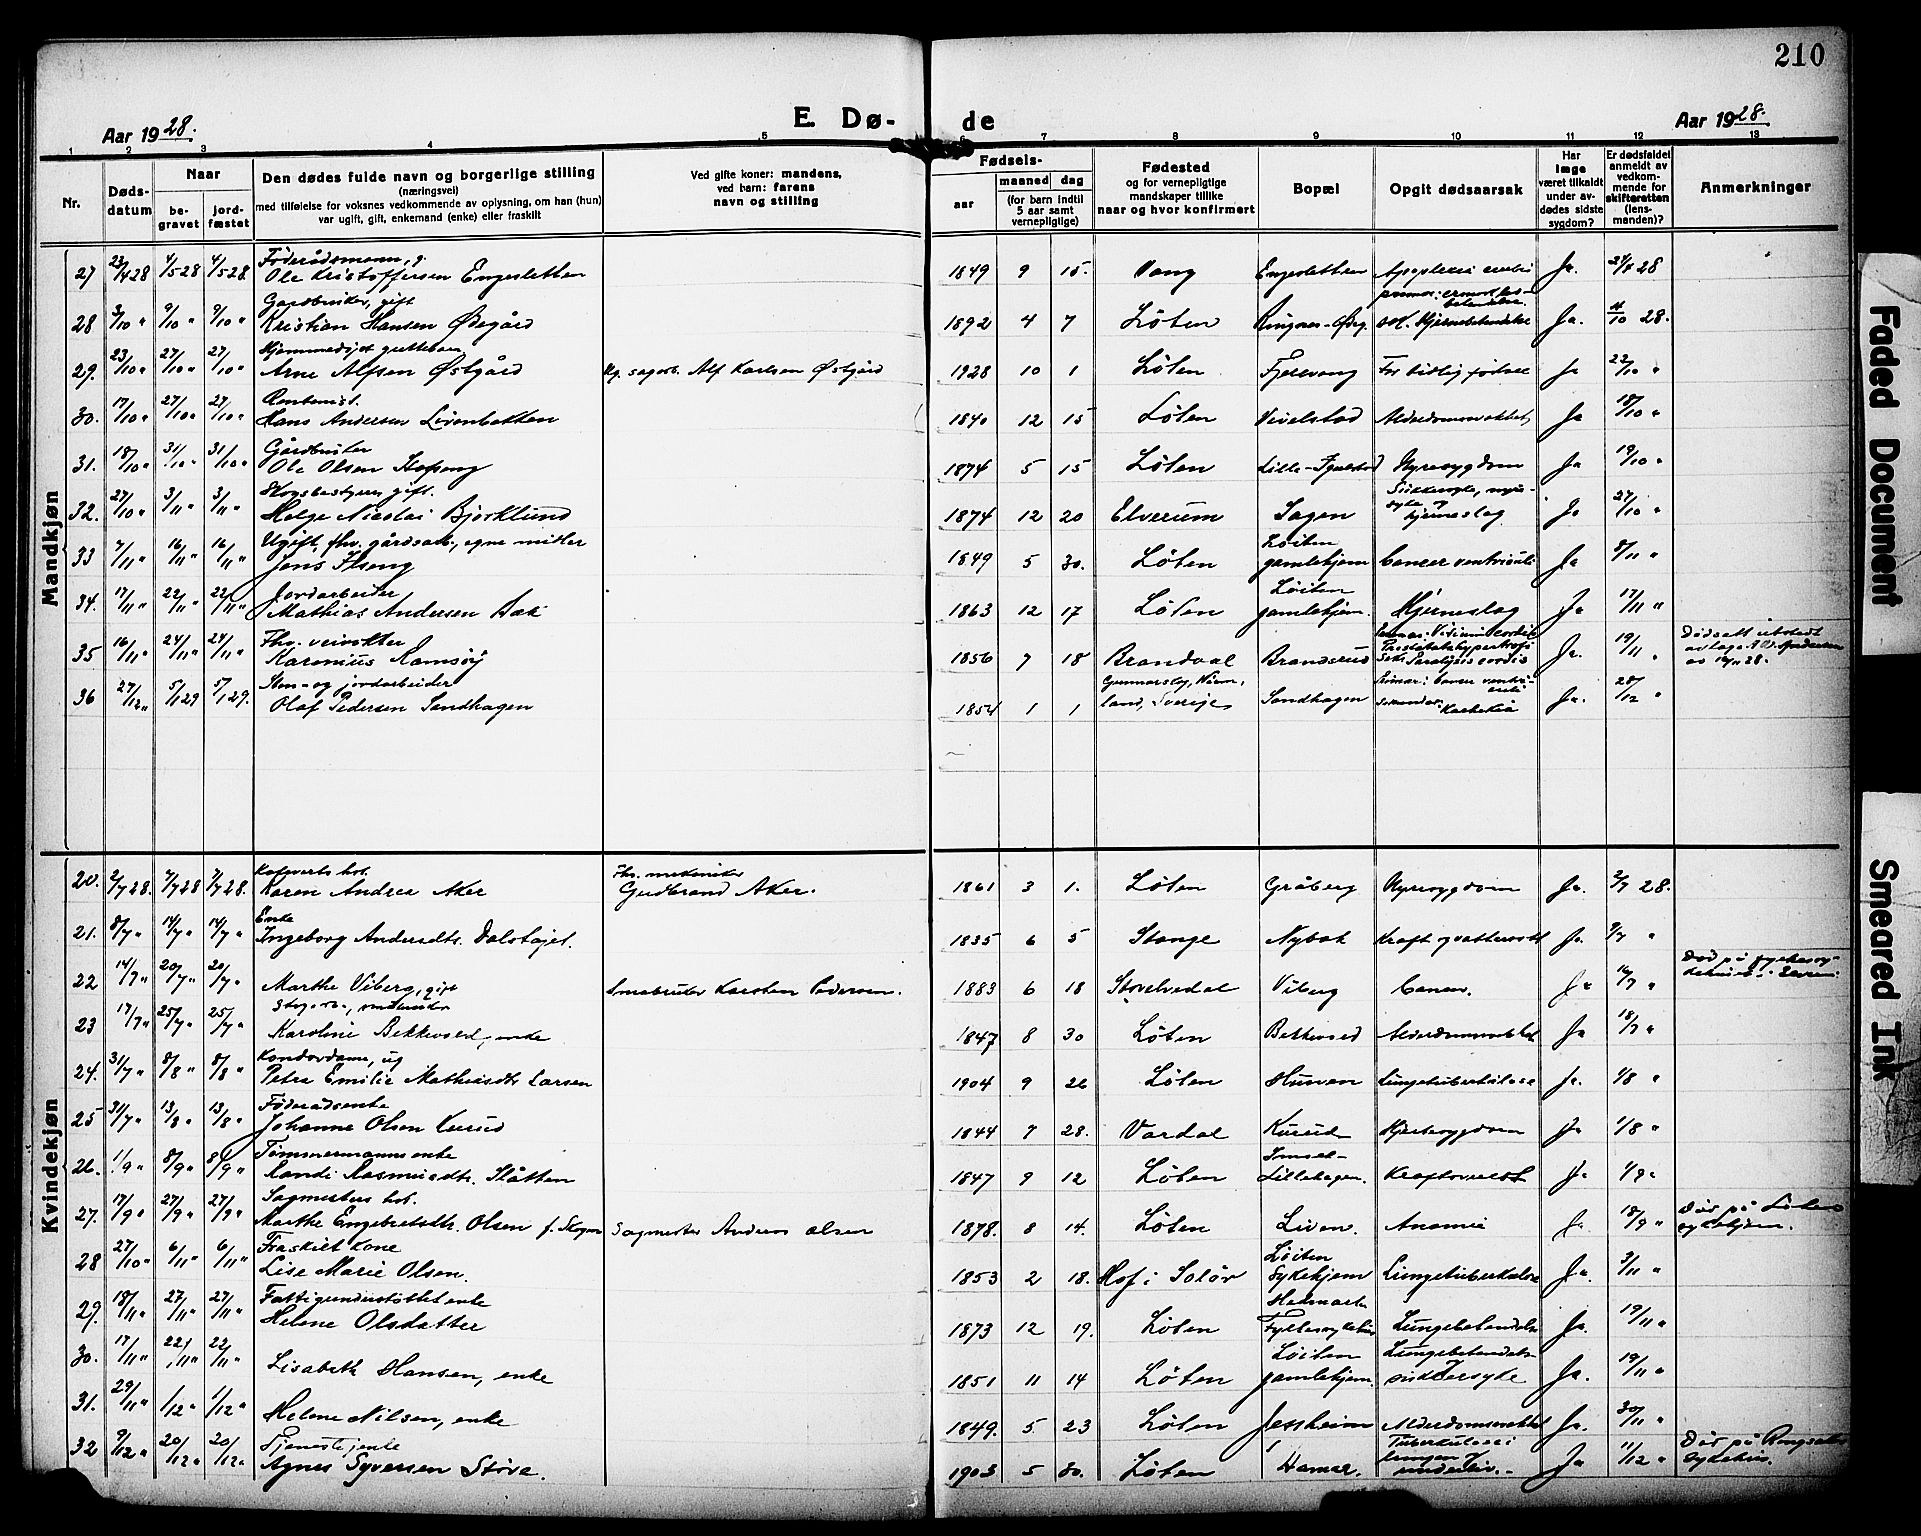 210
Aar 1928.
E. Dø-
de
Aar 1928.
1 2 3 4 5 6 7 8 9 10 11 12 13
Nr.
Døds-
datum
Naar
be-
gravet
jord-
fæstet
Den dødes fulde navn og borgerlige stilling
(næringsvei)
med tilføielse for voksnes vedkommende av oplysning, om han (hun)
var ugift, gift, enkemand (enke) eller fraskilt
Ved gifte koner: mandens,
ved barn: farens
navn og stilling
Fødsels-
aar
maaned dag
(for barn indtil
5 aar samt
vernepligtige)
Fødested
og for vernepligtige
mandskaper tillike
naar og hvor konfirmert
Bopæl
Opgit dødsaarsak
Har
læge
været tilkaldt
under av-
dødes sidste
sygdom?
Er dødsfaldet
anmeldt av
vedkom-
mende for
skifteretten
(lens-
manden)?
Anmerkninger
Mandkjøn
27 23/4 28 4/5 28 4/5 28 Føderådsmann, g.
Ole Kristoffersen Engesletten 1849 9 15. Vang Engesletten Apoplexi Ja. 28
28 3/10 " 9/10 " 9/10 " Gardbruker, gift
Kristian Hansen Ødegård 1892 4 7 Løten Ja. 28.
29. 23/10 " 27/10 " 27/10 " Hjemmedøpt guttebarn
Arne Alfsen Østgård Alf Karlsen Østgård 1928 10 1 Løten For tidlig født Ja 22/10 "
30. 17/10 " 27/10 " 27/10 "
Hans Andersen 1840 12 15 Løten Vivelstad Alderdomssvakhet Ja 18/10 "
31. 18/10 " 31/10 " 31/10 " Gårdbruker
Ole Olsen 1874 5 15 Løten Nyresygdom Ja 19/10 "
32. 27/10 " 3/11 " 3/11 " Skogbestyrer, gift.
Helge Nicolai Bjørklund 1874 12 20 Elverum Sagen Sukkersyke, nyre-
syke og hjerneslag Ja 27/10 "
33 7/11 " 16/11 " 16/11 " Ugift, fhv. gårdsarb., egne midler
Jens Ilseng 1849 5 30. Løten Løiten
gamlehjem Cancer ventriculi Ja 8/11 "
34. 17/11 " 22/11 " 22/11 " Jordarbeider
Mathias Andersen Bæk 1863 12 17 Løten Løiten
gamlehjem. Hjerneslag Ja 17/11 "
35 16/11 " 24/11 " 24/11 " Fhv. veivokter
Karenius Ramsøy 1856 7 18 Brandval Brandsrud Primær: Vitium cordis
Prostatahypertrofi
Sek: Paralysis cordis Ja. 19/11 " Dødsatt. utstedt
av læge Andersen
av 19/11 28.
36 27/12 " 5/1 29 5/1 29. Sten- og jordarbeider
Olaf Pedersen Sandhagen 1854 1 1 Gunnarskog, Værm-
land, Sverige Sandhagen Primær: Cancer ventri-
culi
Sekundær: Kachexia Ja. 28/12 "
Kvindekjøn
20. 2/7 28. 7/7 28 7/7 28. hst.
Karen Andrea Aker Fhv. mekaniker
Gudbrand Aker. 1861 3 1. Løten Gråberg Nyresygdom Ja. 2/7 28.
21. 8/7 " 14/7 " 14/7 " Enke
Ingeborg Andersdtr. 1835 6 5 Stange Nybak Ja. 9/7 "
22 14/7 " 20/7 " 20/7 " Marthe Viberg, gift Småbruker Karsten Pedersen. 1883 6 18 Viberg Cancer. Ja 16/7 " Død på fylkessy-
23 17/7 " 25/7 " 25/7 "
Karoline Bekkevold, enke 1847 8 30 Løten Bekkevold Alderdomssvakhet Ja 18/7 "
24. 31/7 " 8/8 " 8/8 " Kontordame, ug
Petra Emilie Mathisdtr Larsen 1904 9 26 Løten Lungetuberkulose Ja. 1/8 "
25 31/7 " 13/8 " 13/8 " Føderådsenke
Johanne Olsen Kurud 1844 7 28. Vardal Kurud Hjertesygdom Ja 1/8 "
26. 1/9 " 8/9 " 8/9 " Tømmermanns enke
Randi Rasmusdtr. Slåtten 1847 9 12 Løten Lillehagen. Ja 1/9 "
27. 17/9 " 27/9 " 27/9 " Sagmesters hst.
Marthe Engebretsdtr. Olsen f. Skogen Sagmester Anders Olsen 1878. 8 14. Løten Liven. Anæmie Ja 18/9 " Død på Løten
sykehjem.
28 27/10 " 6/11 " 6/11 " Fraskilt kone
Lise Marie Olsen. 1853 2 18. Hof i Solør Løiten
Sykehjem Lungetuberkulose Ja. 3/11 "
29. 18/11 " 27/11 " 27/11 " Fattigunderstøttet enke
Helene Olsdatter 1873 12 19. Løten Hedmark
Fylkessykehus Lungebetendelse Ja. 19/11 "
30. 17/11 " 22/11 " 22/11 " Lisabeth Hansen, enke 1851 11 14 Løten Løiten
gamlehjem. Lungebetendelse
sukkersyke Ja. 19/11 "
31. 29/11 " 1/12 " 1/12 " Helene Nilsen, enke 1849. 5 23 Løten Jessheim Alderdomssvakhet Ja. 30/11 "
32 9/12 " 20/12 " 20/12 " Tjenestejente
Agnes Syversen Støve. 1903 5 30. Løten Hamar. Tuberkulose i
lungen og
underliv. Ja 11/12 " Død på
sykehus.
Faded Document
Smeared Ink